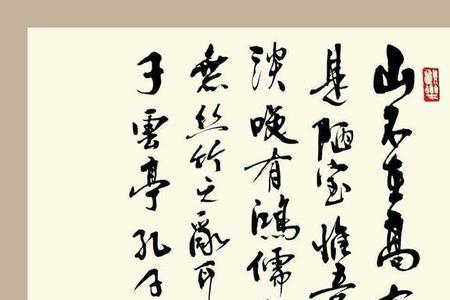 山不在高
是陋室惟吾
談咲有鴻儒
無絲竹之亂耳
子雲亭孔子